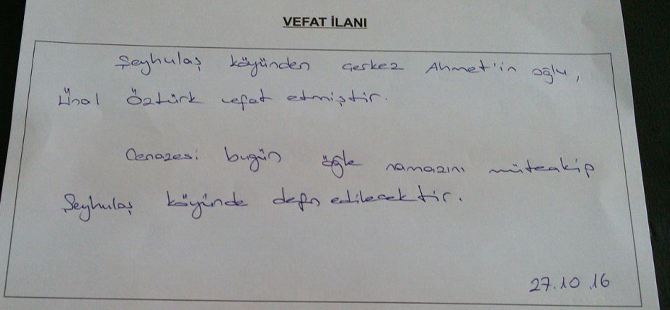 VEFAT İLANI
Şeyhulaş köyünden Çerkez Ahmet'in oğlu,
Ünal Öztürk vefat etmiştir.
Cenazesi bugün öğle namazını müteakip
Şeyhulaş köyünde defn edilecektir.
27.10.16